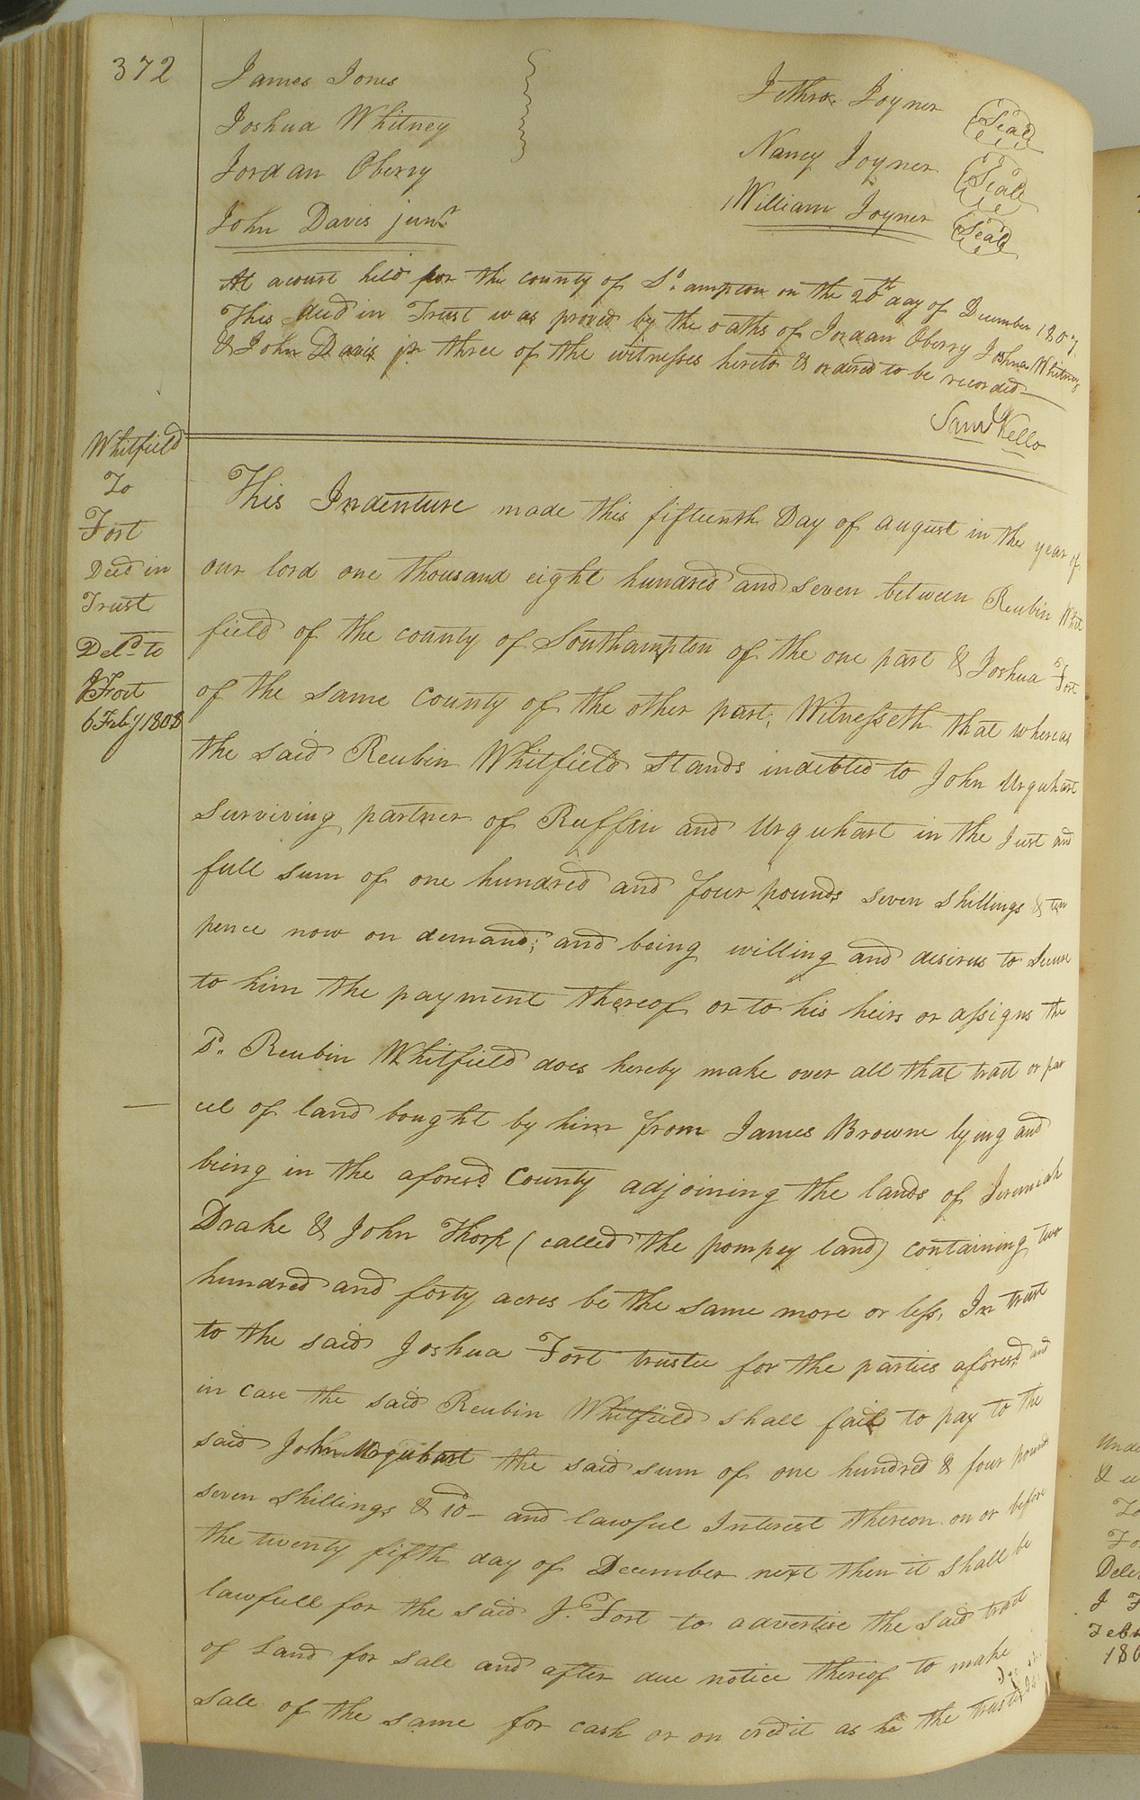 372
James Jones
Joshua Whitney
Jordan Oberry
John Davis junr
Jethro Joyner Seal
Nancy Joyner Seal
William Joyner Seal
At a court held for the county of So. ampton on the 20th day of December 1807
This deed in Trust was proved by the oaths of Jordan Oberry Joshua Whitney
& John Davis jr three of the witnesses hereto & ordered to be recorded
Saml Kello
Whitfield
To
Fort
Deed in
Trust
Deld to
J Fort
6 Feby 1808
This Indenture made this fifteenth Day of august in the year of
our lord one thousand eight hundred and seven between Reubin Whit
field of the county of Southampton of the one part & Joshua Fort
of the same County of the other part, Witnesseth that whereas
the said Reubin Whitfield Stands indebted to John Urquhart
surviving partner of Ruffin and Urquhart in the Just and
full sum of one hundred and four pounds seven shillings & ten
pence now on demand; and being willing and desirus to Secure
to him the payment thereof or to his heirs or assigns the
Sd. Reubin Whitfield does hereby make over all that tract or par
cel of land bought by him from James Browne lying and
being in the aforesd. County adjoining the lands of Jeremiah
Drake & John Thorp (called the pompey land) containing two
hundred and forty acres be the same more or less, In trust
to the said Joshua Fort trustee for the parties aforesd. and
in case the said Reubin Whitfield shall fail to pay to the
said John Urquhart the said sum of one hundred & four pounds
seven shillings & 10d - and lawful Interest thereon on or before
the twenty fifth day of December next then it shall be
lawfull for the said J. Fort to advertise the said tract
of Land for sale and after due notice thereof to make
sale of the same for cash or on credit as he the trustee
Unde
&
To
Fo
Deli
J F
Feb
180